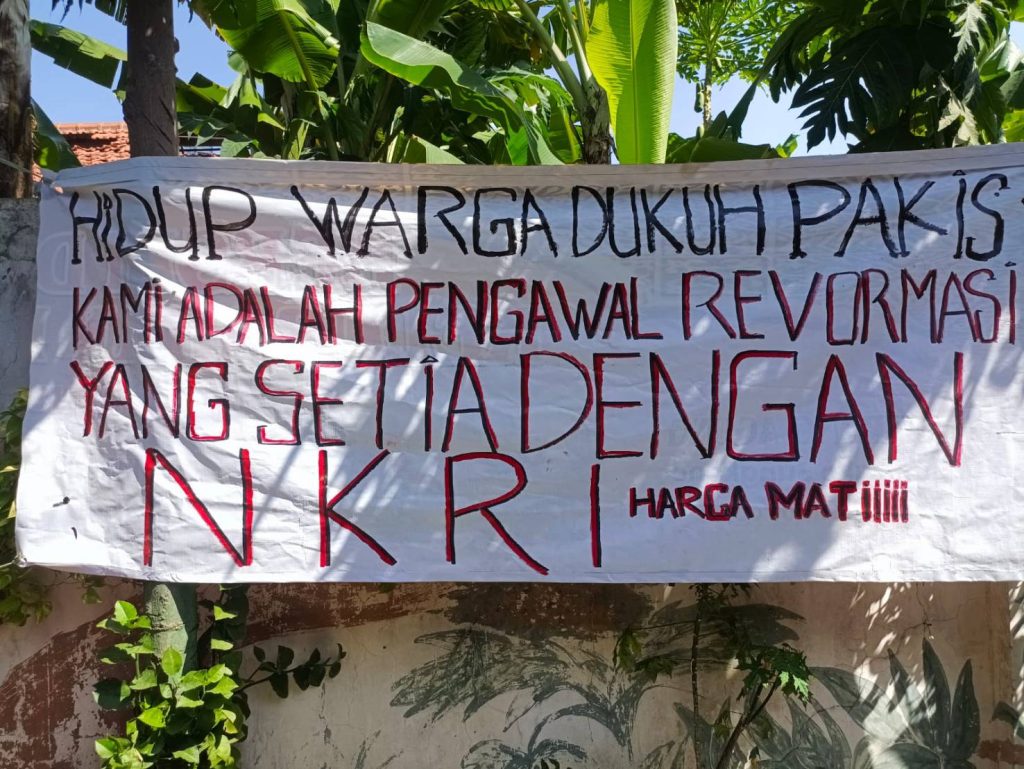 HiDUP WARGA DUKUH PAKiS
KAMi ADALAH PENGAWAL REVORMASi
YANG SETiA DENGAN
NKRI HARGA MATiiiii